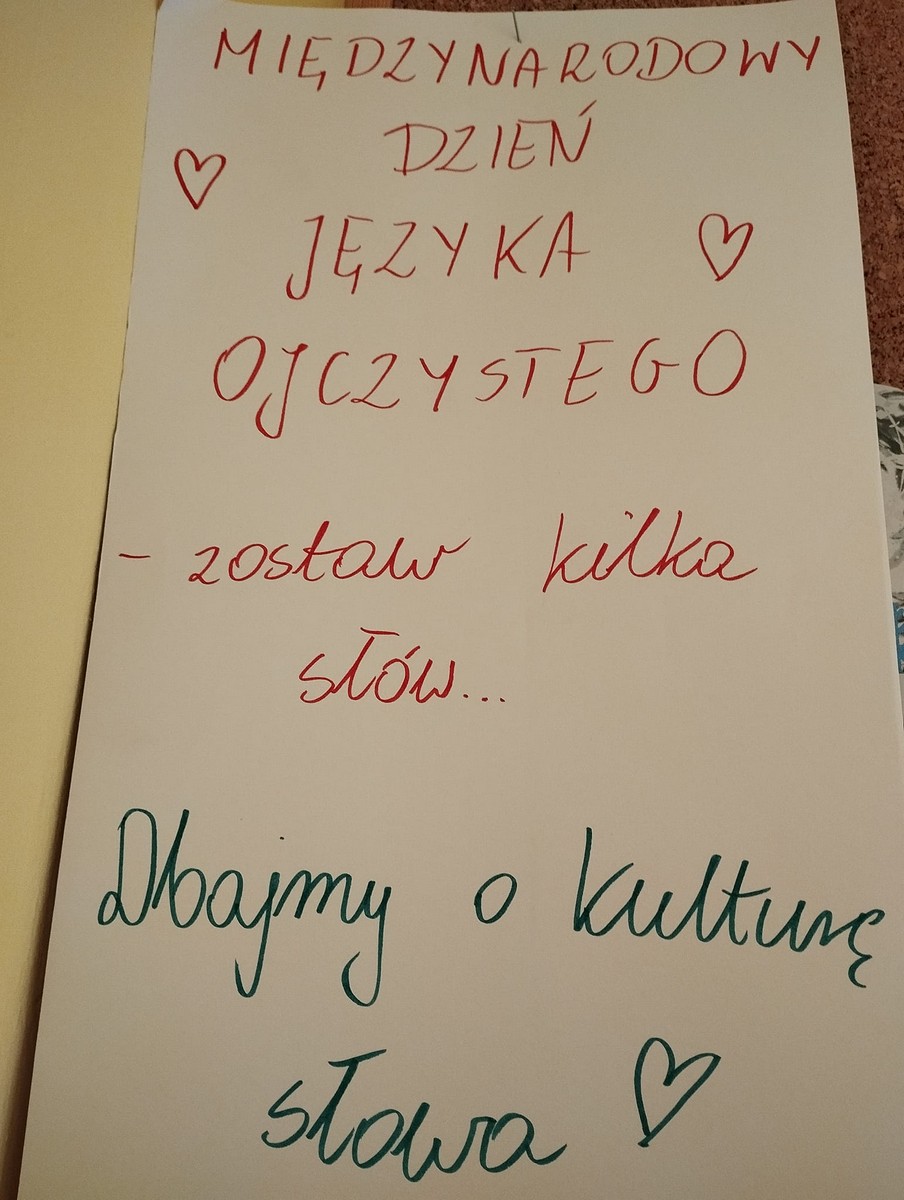 MIĘDZYNARODOWY
DZIEŃ
JĘZYKA
OJCZYSTEGO
- zostaw kilka
słów...
Dbajmy o kulturę
słowa